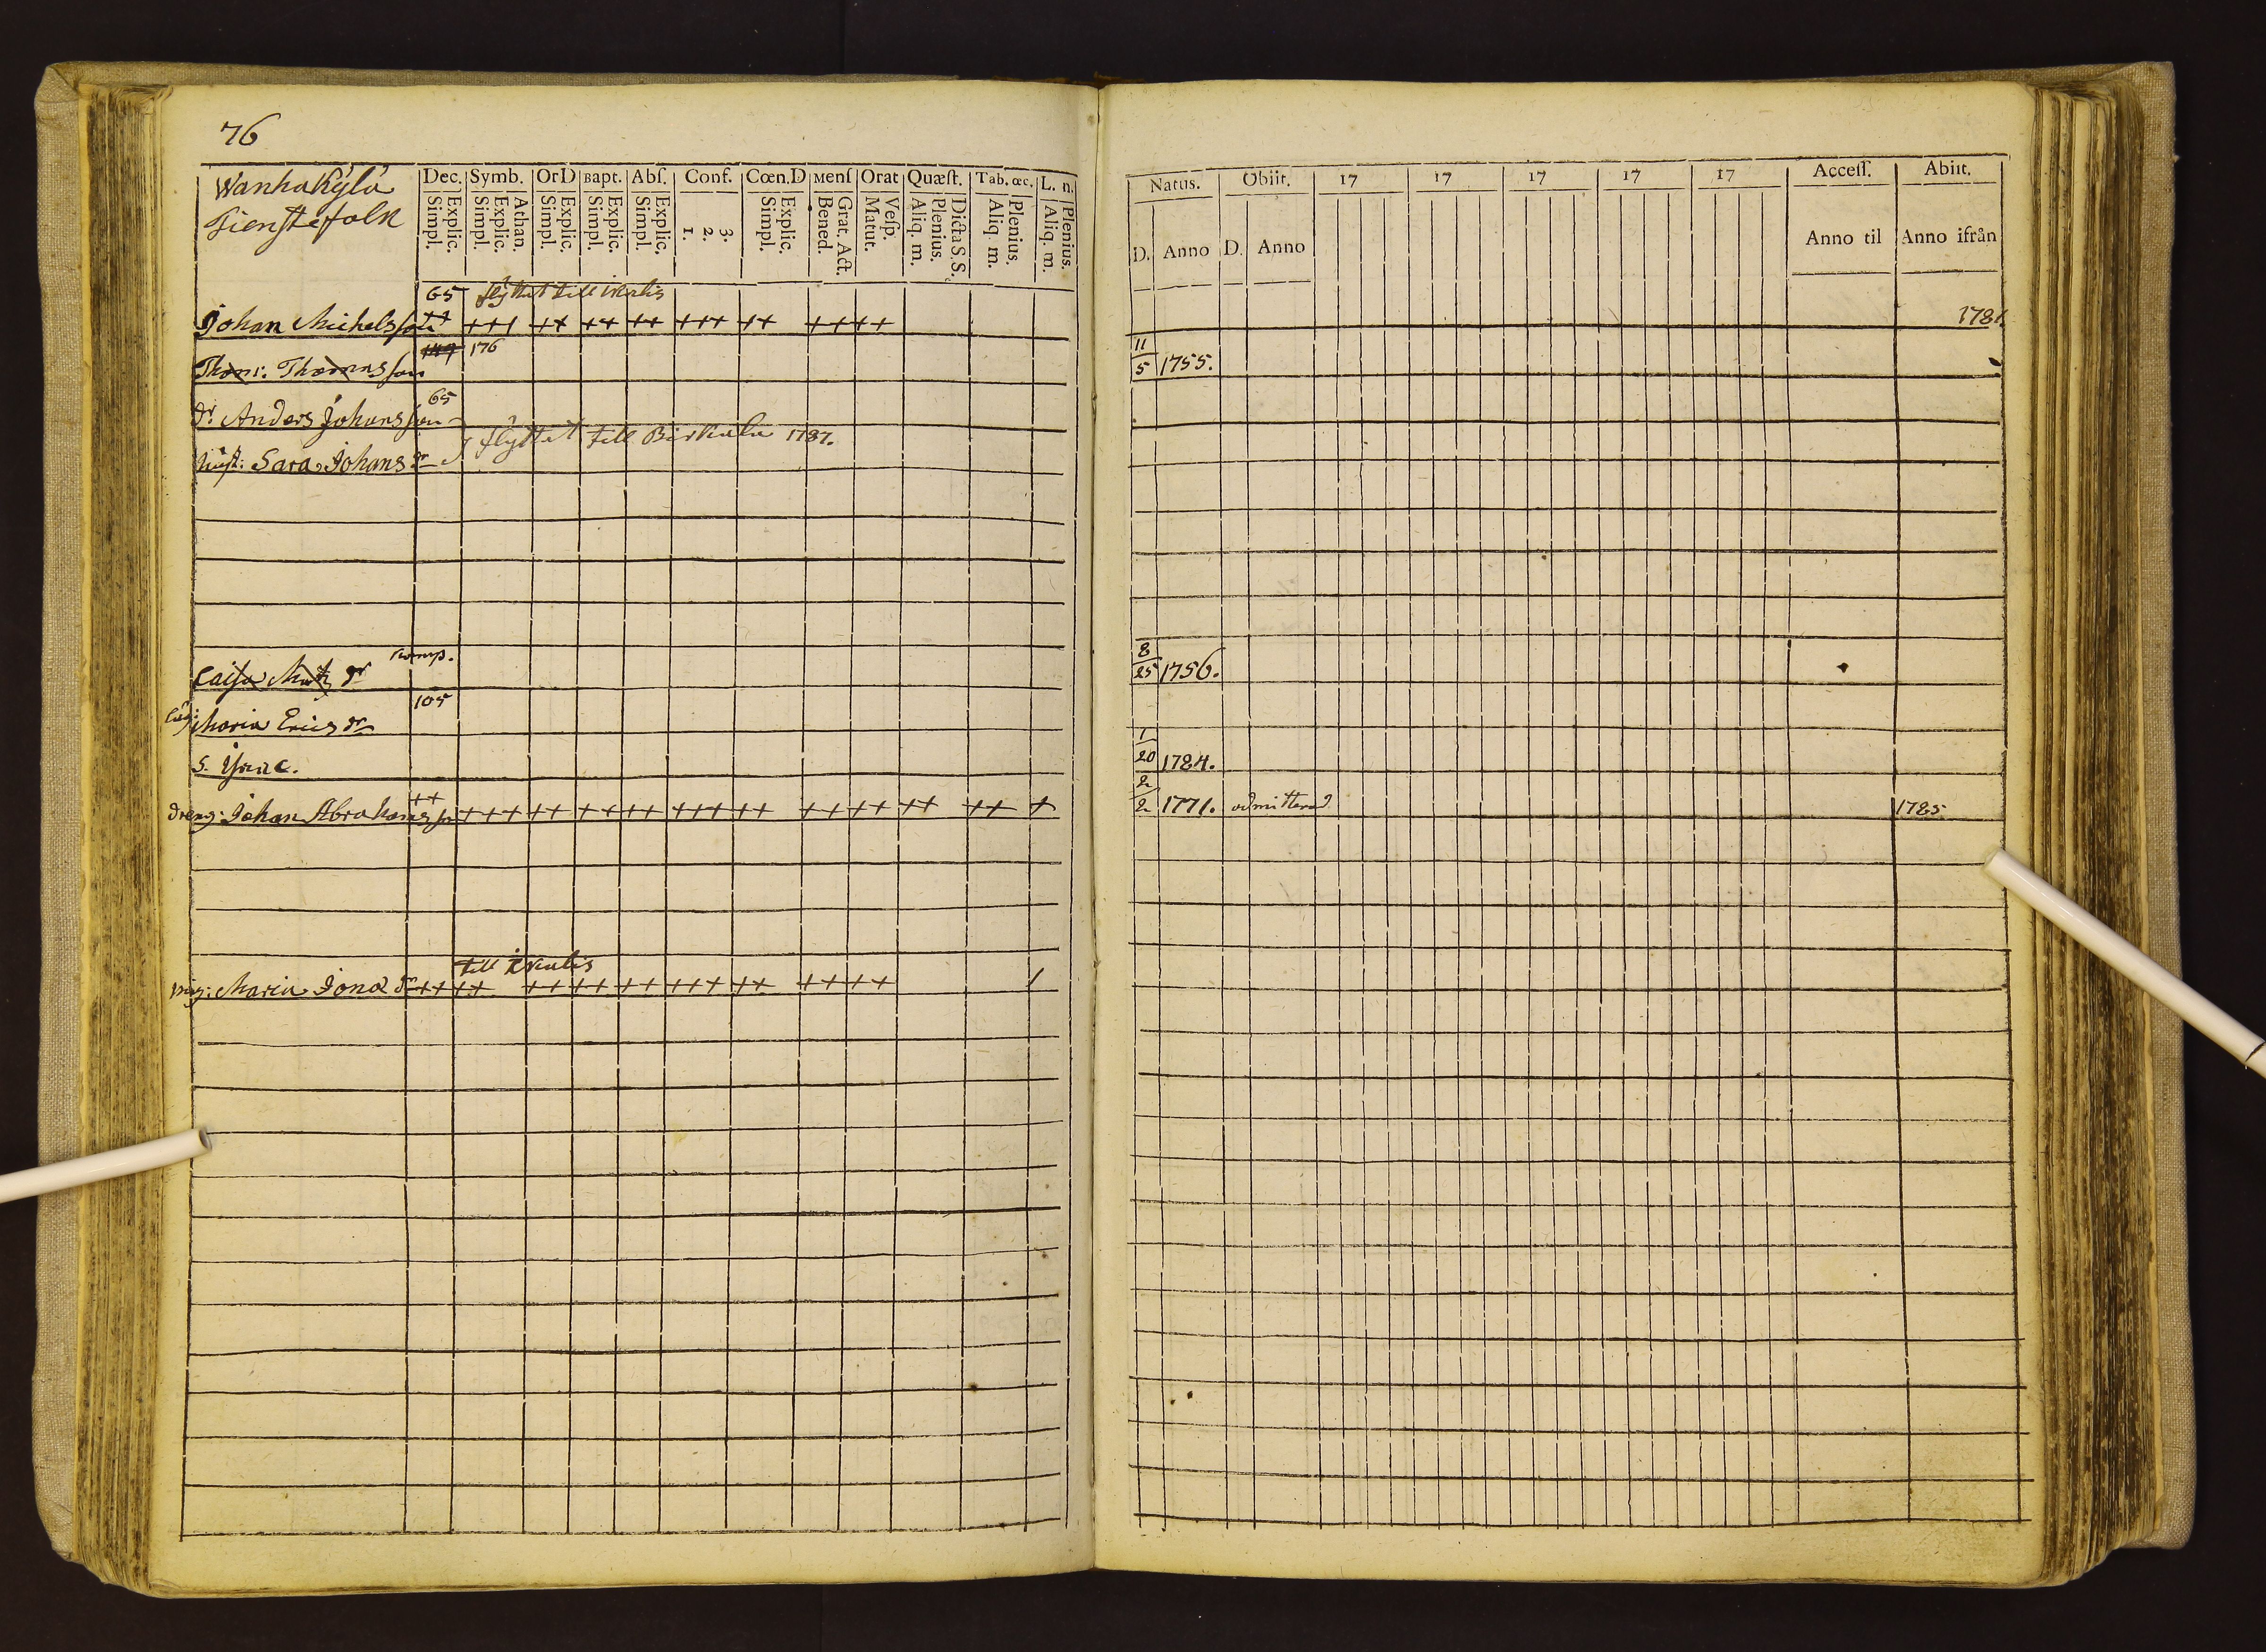 76
WanhaKylä
Tienstefolk
Dec. Symb. OrD Bapt. Abſ. Conf. Cœn.D Menſ Orat Quæſt. Tab. œc. L. n.
Explic. Simpl. Athan. Explic. Simpl. Explic. Simpl. Explic. Simpl. Explic. Simpl. 3. 2. 1. Explic. Simpl. Grat. Act. Bened. Veſp. Matut. Dicta S.S. Plenius. Aliq. m. Plenius. Aliq. m. Plenius. Aliq. m.
Natus. Obiit. 17 17 17 17 17 Acceſſ. Abiit.
D. Anno D. Anno Anno til Anno ifrån
65 flyttat till
Johan Michelsson ++ +++ ++ ++ ++ +++ ++ ++++ 1781.
Thom: Thomasson 149 176 11/5 1755.
65
dr. Anders Johansson
flyttat till Birkala 1787.
hust: Sara Johans dr
Caisa Matts dr 8/25 1756.
105
Maria Erics dr
S. Isaac. 1/20 1784.
dreng: Johan Abrahamsson ++ +++ ++ ++ ++ +++ ++ ++++ ++ ++ + 2/2 1771. admitterad 1785
till
pig: Maria Jona dr ++ ++ ++ ++ ++ +++ ++ ++++ /